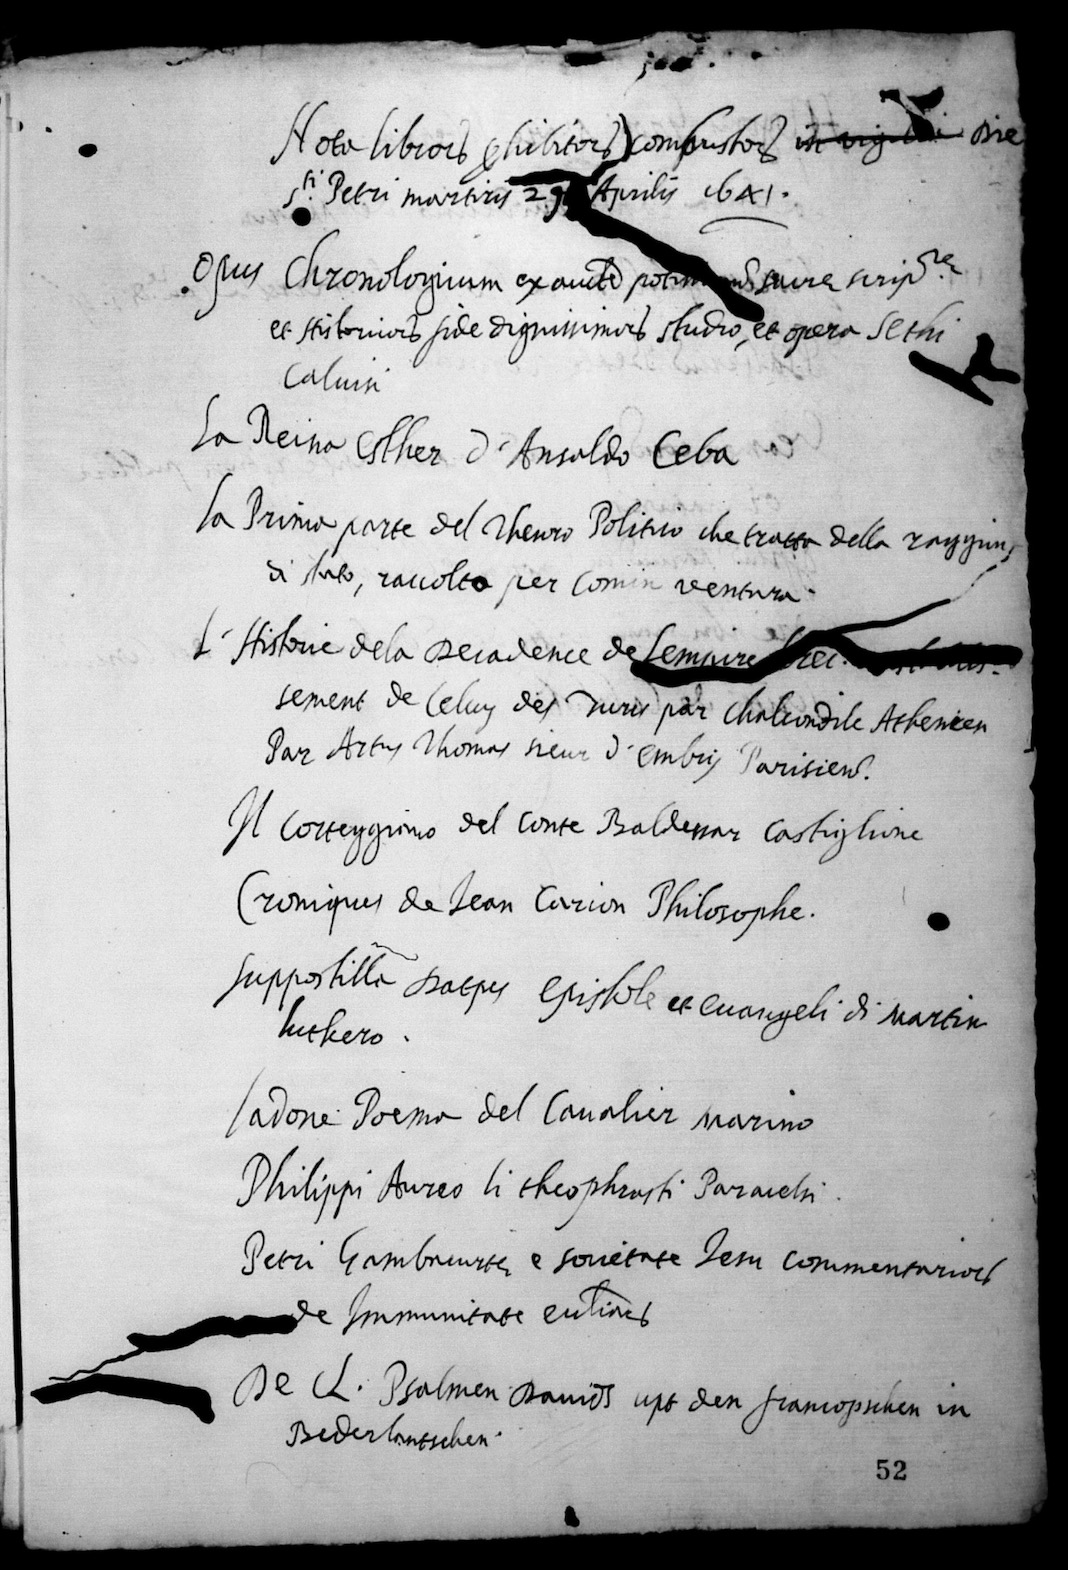 Nota librorũ phibitorũ combustorũ in vigilia die
S.ti Petri martiris 29 Aprilis 1641.
Opus Chronologicum ex auctẽ potissimũ sacræ scrip.re
et Historicorũ fide dignissimorũ studio, et opera Sethi
Caluisi
La Reina Esther d'Ansaldo Ceba
la Prima parte del Thesoro Politico che tratta della raggion
di stato, raccolta per Comin ventura.
L'Historie dela Decadence de Lempire grec.
sement de Celuy des Turcs par Chalcondile Athenien
Par Artus Thomas sieur d'embry Parisien.
Il Corteggiano del Conte Baldessar Castiglione
Croniques de Jean Carion Philosophe.
Suppostilla epistole et euangeli di Martin
luthero.
l'adone Poema del Caualier Marino
Philippi Aureo li theophrasti Paracelsi.
Petri Gambacurtæ e societate Jesu Commentariorũ
de Immunitate eccl.iarũ
De CL. Psalmen Dauids upt den francoyschen in
Nederlantschen.
52